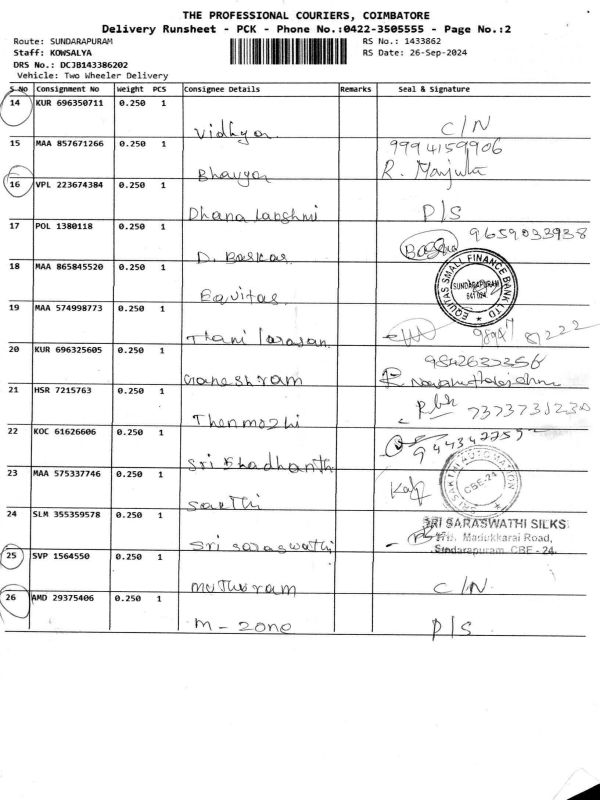 THE PROFESSIONAL COURIERS, COIMBATORE
Delivery Runsheet - PCK - Phone No.:0422-3505555 - Page No.:2
Route: SUNDARAPURAM RS No.: 1433862
Staff: KOWSALYA RS Date: 26-Sep-2024
DRS No.: DCJB143386202
Vehicle: Two Wheeler Delivery
S No Consignment No Weight PCS Consignee Details Remarks Seal & Signature
14 KUR 696350711 0.250 1
Vidhya C/N
15 MAA 857671266 0.250 1 9994159906
Bhavya R. Manjula
16 VPL 223674384 0.250 1
Dhana lapshmi P/S
17 POL 1380118 0.250 1 9659033938
D. Baskar Baskar
18 MAA 865845520 0.250 1
Equitas EQUITAS SMALL FINANCE BANK LTD SUNDARAPURAM 641 024
19 MAA 574998773 0.250 1
Thani larasan
20 KUR 696325605 0.250 1
Ganeshram
21 HSR 7215763 0.250 1
Thenmozhi
22 KOC 61626606 0.250 1
Sri Bhadhanth
23 MAA 575337746 0.250 1 SRI SAKTHI AUTOMATION CBE-24
Sakthi
24 SLM 355359578 0.250 1 SRI SARASWATHI SILKS
Sri saraswathi Madukkarai Road,
Sundarapuram, CBE - 24.
25 SVP 1564550 0.250 1
muthuram C/N
26 AMD 29375406 0.250 1
M - zone P/S